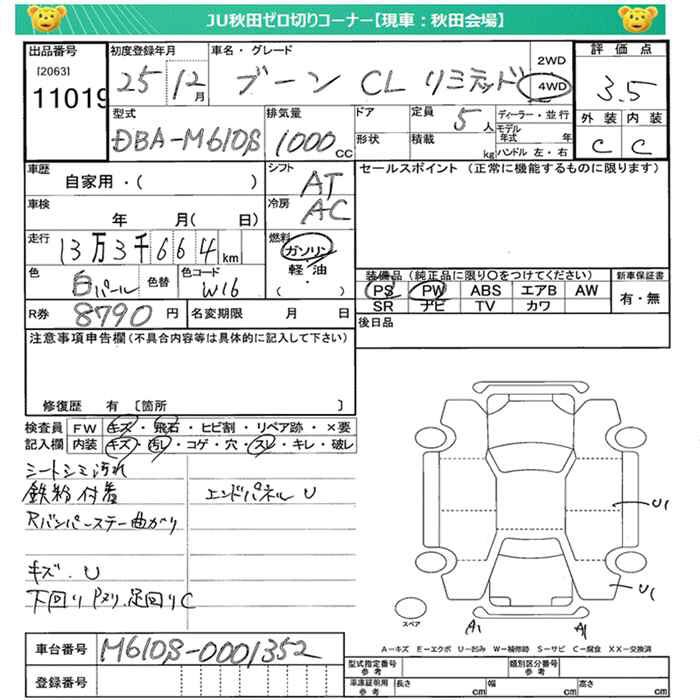 JU秋田ゼロ切りコーナー【現車：秋田会場】
出品番号 初度登録年月 車名・グレード 2WD 評価点
[2063] 11019 25 12月 ブーン CL リミテッド 4WD 3.5
型式 排気量 ドア 定員 ディーラー・並行 外装 内装
DBA-M610S 1000CC 形状 積載 5人 kg モデル年式 年 ハンドル 左・右 C C
車歴 シフト セールスポイント (正常に機能するものに限ります)
自家用・( ) AT
車検 冷房
年 月( 日) AC
走行 燃料
13万3千664km ガソリン
軽・油
( )
色 色替 色コード
白パール W16
装備品(純正品に限り○をつけてください) 新車保証書
PS PW ABS エアB AW 有・無
SR ナビ TV カワ
R券 8790円 名変期限 月 日
後日品
注意事項申告欄(不具合内容等は具体的に記入して下さい)
修復歴 有 〔箇所 〕
検査員 FW キズ・飛石・ヒビ割・リペア跡・×要
記入欄 内装 キズ・汚れ・コゲ・穴・スレ・キレ・破レ
シートシミ汚れ
鉄粉付着 エンドパネルU
Rバンパーステー曲がり
キズ.U
下回りPヌリ.足回りC
U1
U1
スペア A1 A1
A－キズ E－エクボ U－凹み W－補修跡 S－サビ C－腐食 XX－交換済
車台番号 M610S-0001352
登録番号
型式指定番号 参考 類別区分番号 参考
車庫証明用 参考 長さ cm 幅 cm 高さ cm